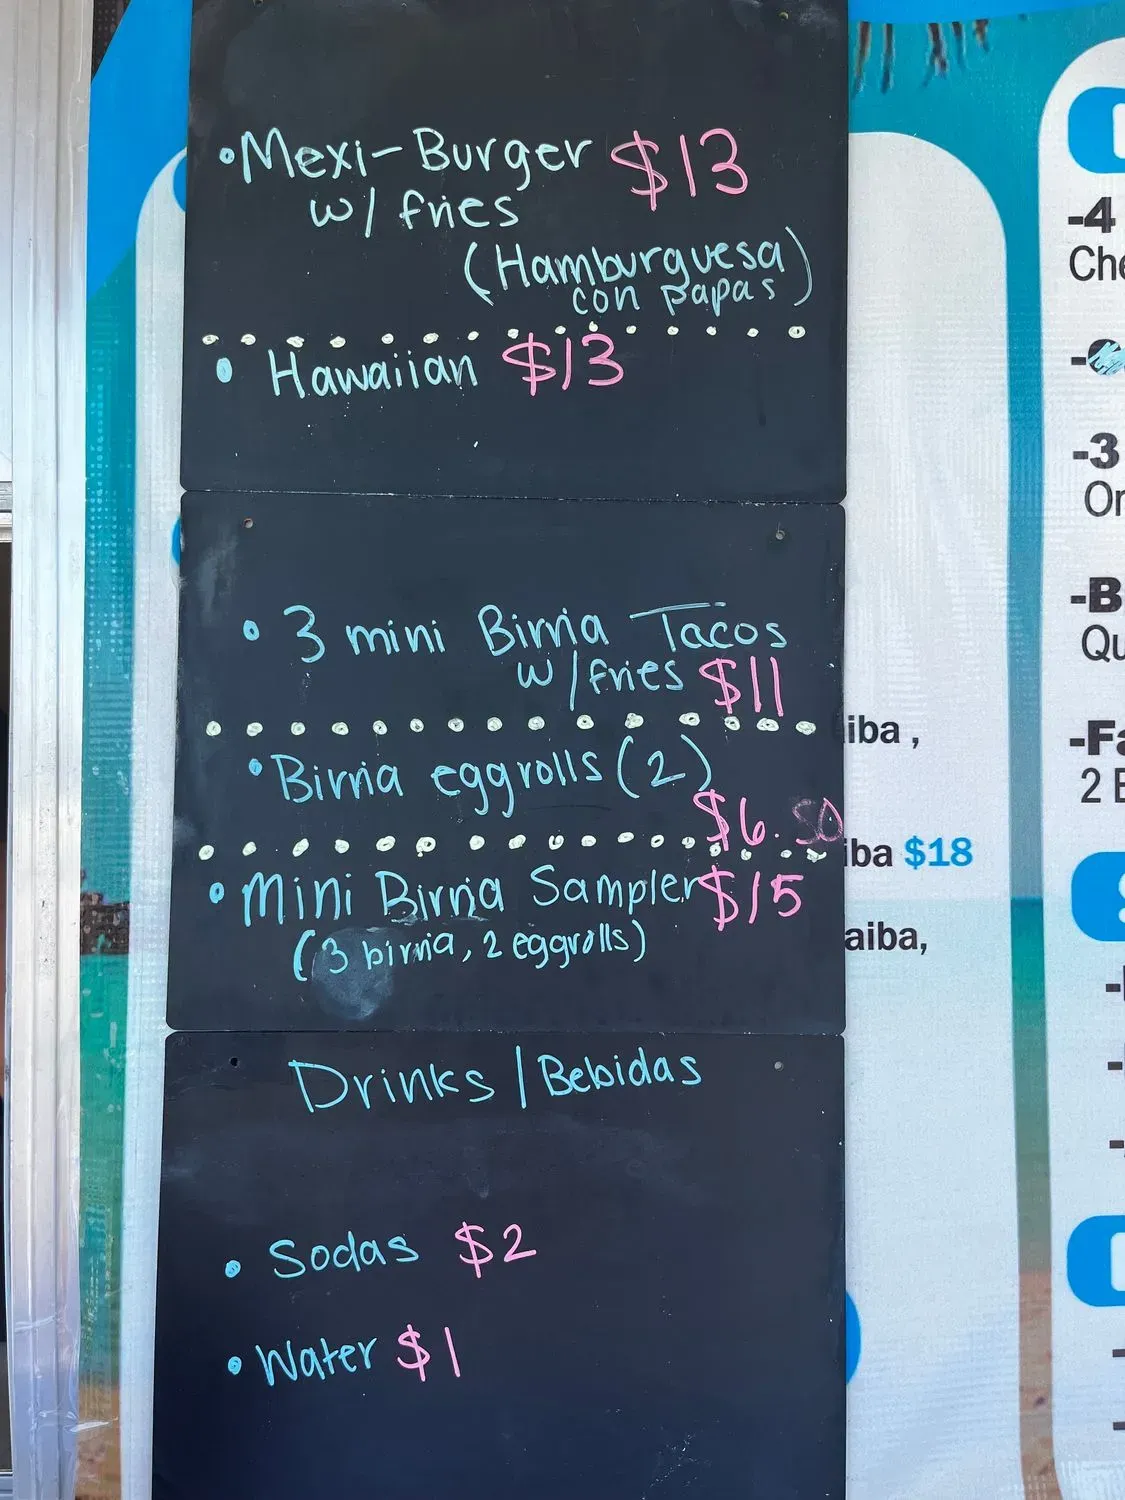 •Mexi-Burger $13
w/ fries
(Hamburguesa)
con papas
• Hawaiian $13
• 3 mini Birria Tacos
w/fries $11
•Birria eggrolls (2)
$6.50
• Mini Birria Sampler $15
(3 birria, 2 eggrolls)
Drinks / Bebidas
• Sodas $2
• Water $1
iba ,
iba $18
aiba,
-4
Che
-3
Or
-B
Qu
-Fa
2 E